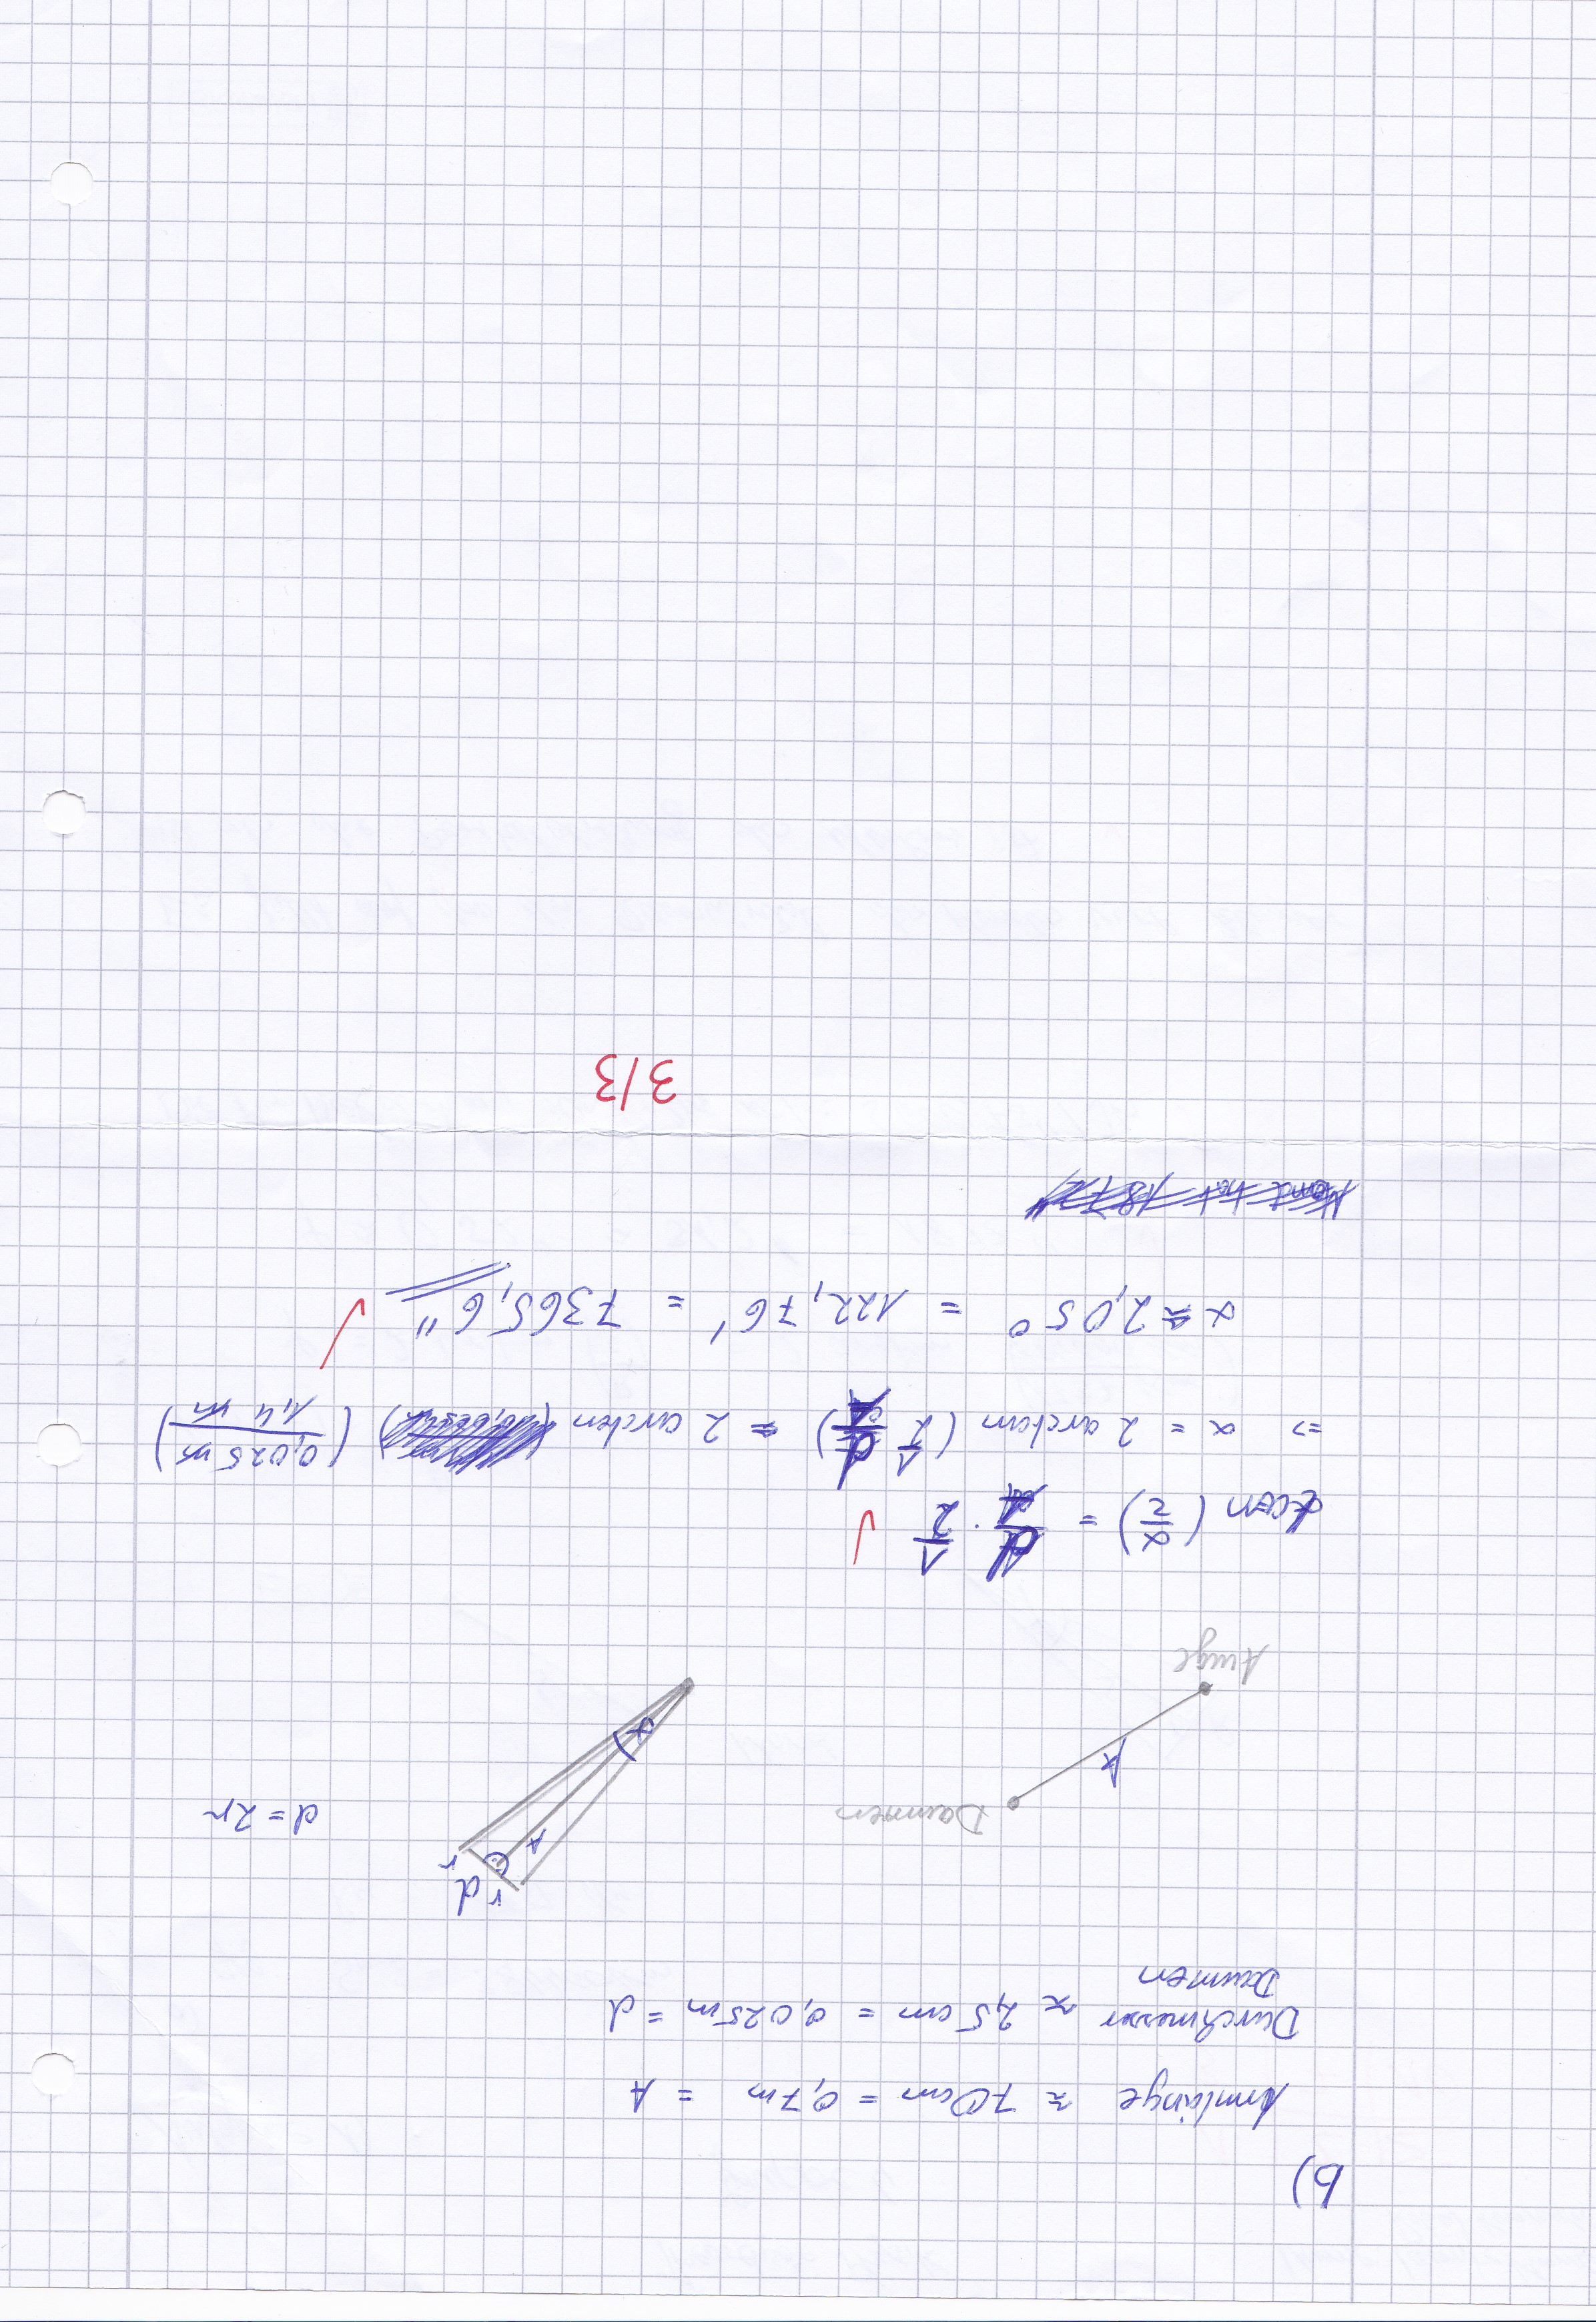 b)
Armlänge ≈ 70cm = 0,7m = A
Durchmesser Daumen ≈ 2,5 cm = 0,025m = d
r d
A r
d = 2r
Daumen
A
α
Auge
tan (α/2) = d/A · 1/2 ✓
=> α = 2 arctan (1/2 d/A) = 2 arctan (0,025 m / 1,4 m)
α ≈ 2,05° = 122,76' = 7365,6" ✓
Mond hat 1872"
3/3